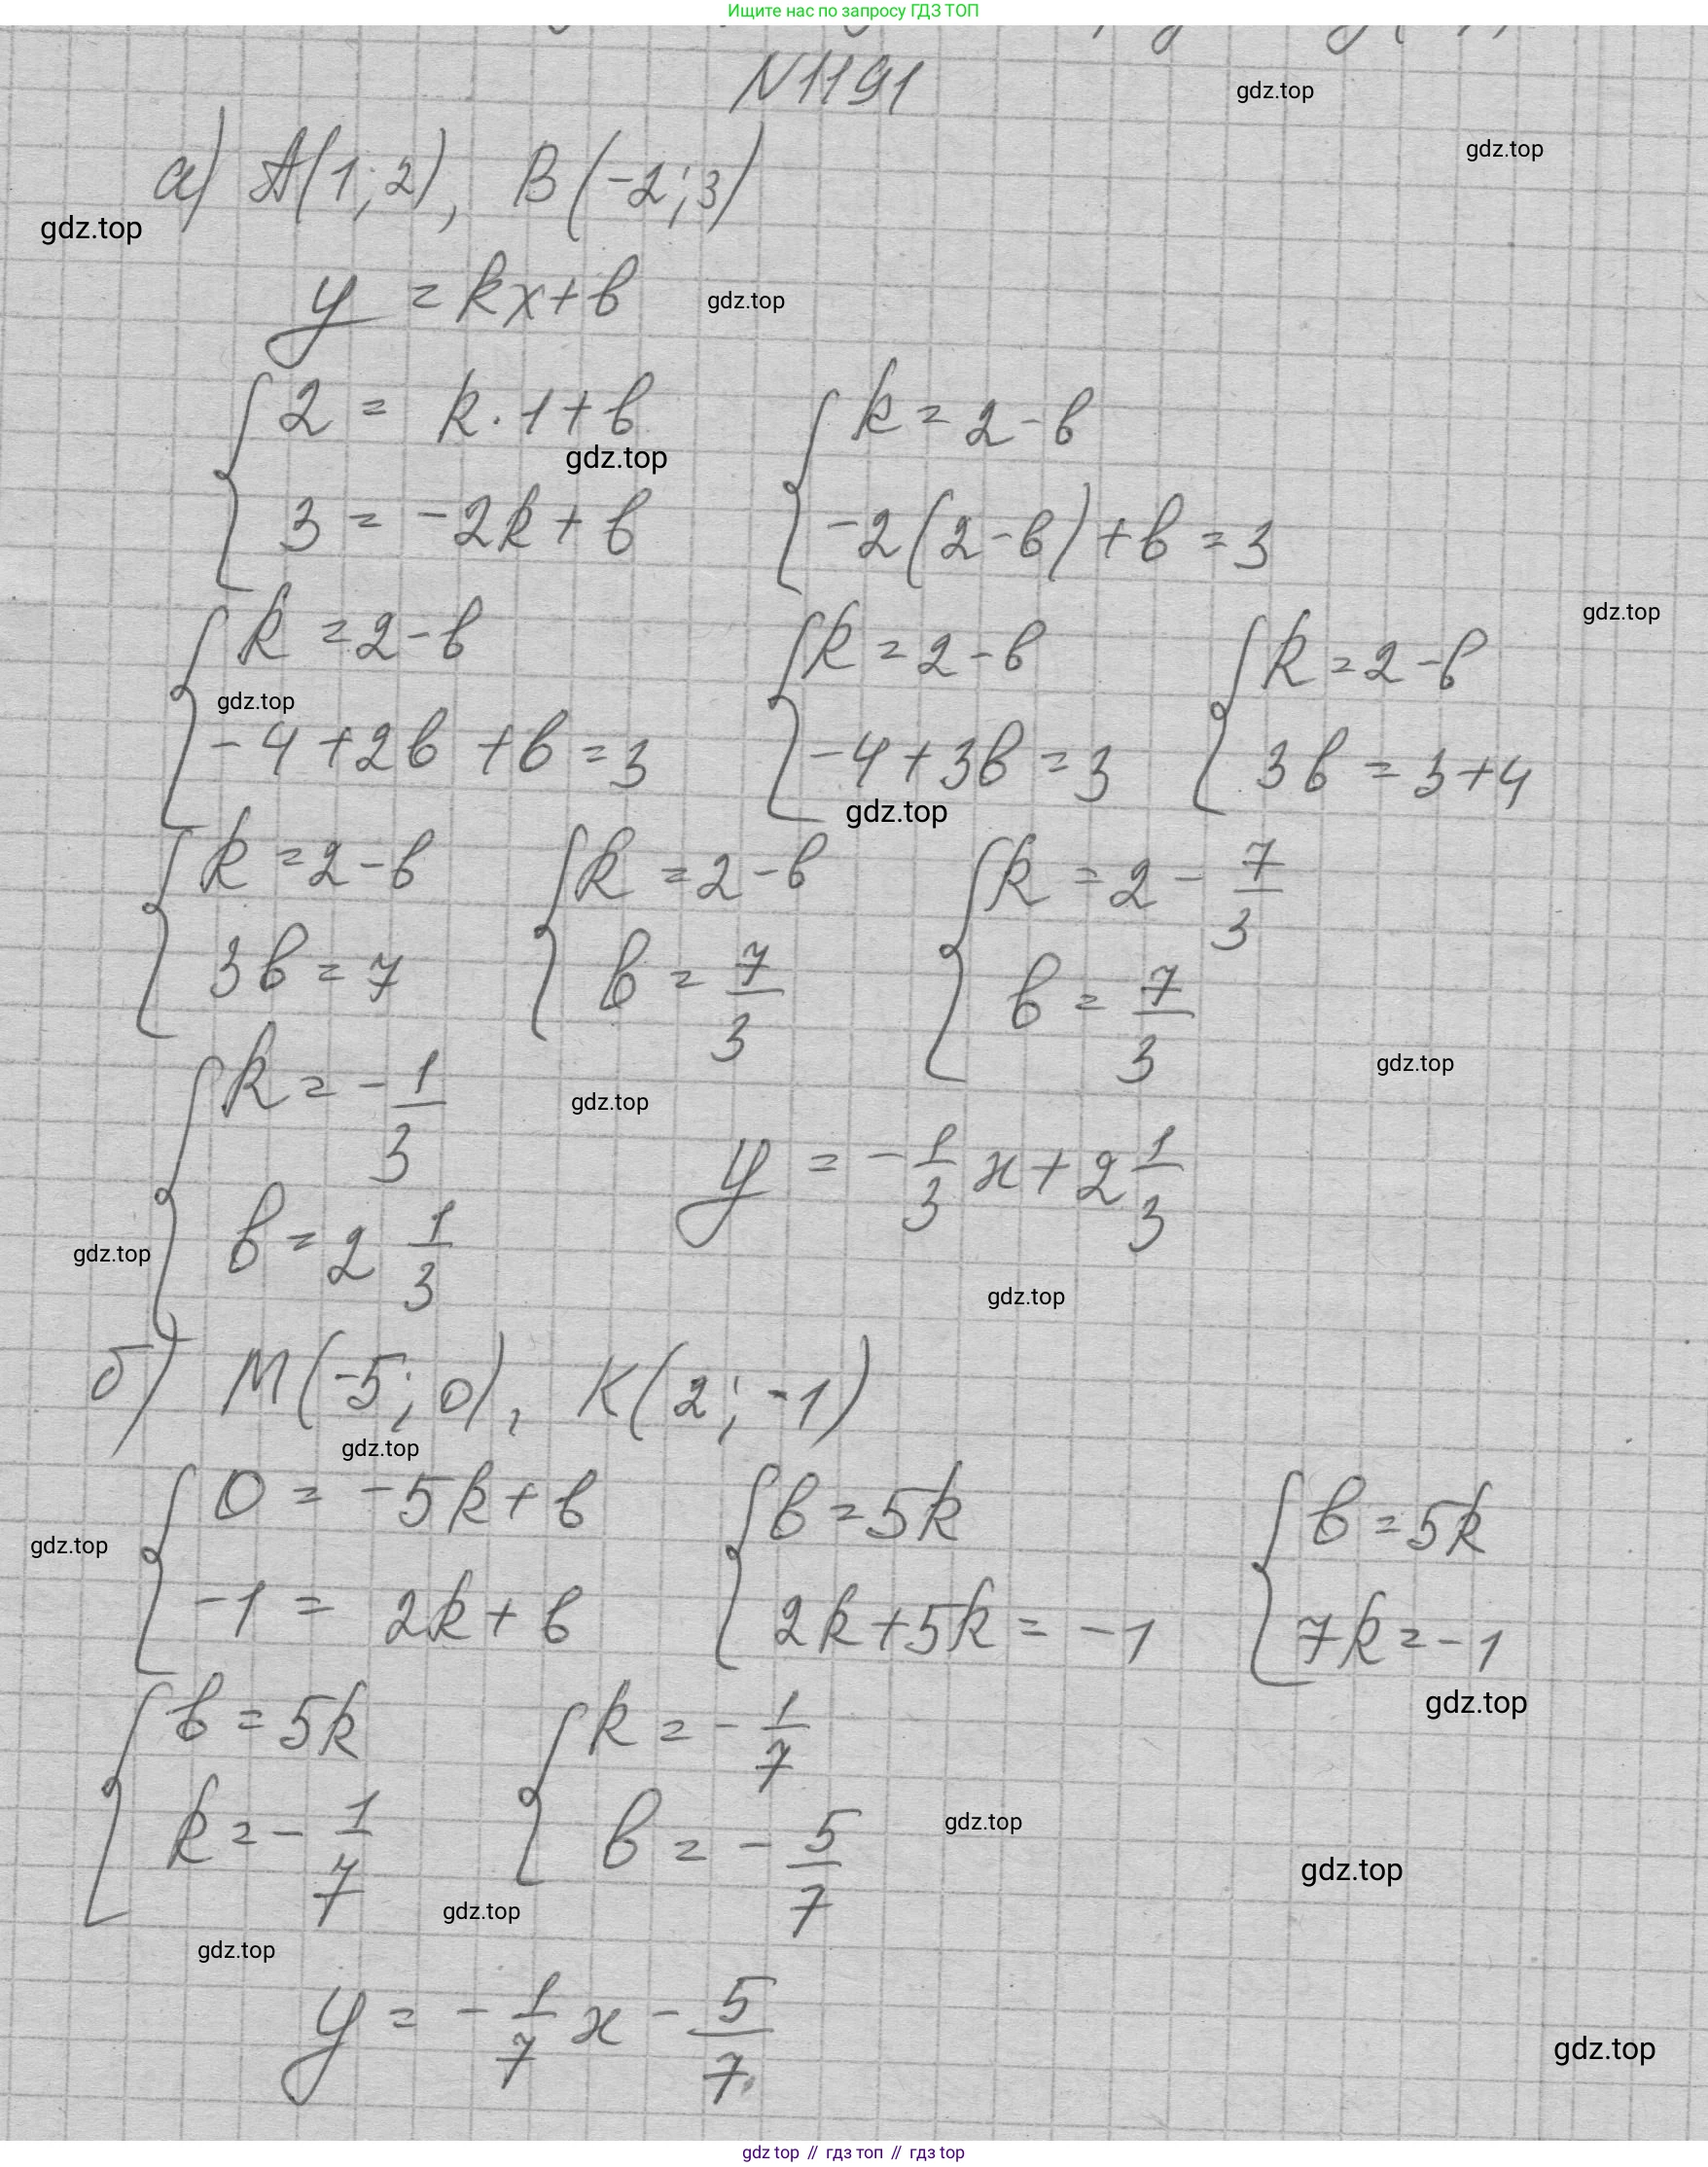 Ищите нас по запросу ГДЗ ТОП
N1191
gdz.top
gdz.top
а) A(1; 2), B(-2; 3)
gdz.top
y = kx+b
gdz.top
{ 2 = k·1+b { k = 2-b
gdz.top
{ 3 = -2k+b { -2(2-b)+b = 3
gdz.top
{ k = 2-b { k = 2-b { k = 2-b
gdz.top
{ -4+2b+b = 3 { -4+3b = 3 { 3b = 3+4
gdz.top
{ k = 2-b { k = 2-b { k = 2 - 7/3
{ 3b = 7 { b = 7/3 { b = 7/3
gdz.top
{ k = - 1/3
gdz.top
y = - 1/3 x + 2 1/3
{ b = 2 1/3
gdz.top
gdz.top
б) M(-5; 0), K(2; -1)
gdz.top
{ 0 = -5k+b { b = 5k { b = 5k
gdz.top
{ -1 = 2k+b { 2k+5k = -1 { 7k = -1
gdz.top
{ b = 5k { k = - 1/7
{ k = - 1/7 { b = - 5/7
gdz.top
gdz.top
gdz.top
gdz.top
y = - 1/7 x - 5/7
gdz.top
gdz top // гдз топ // гдз top